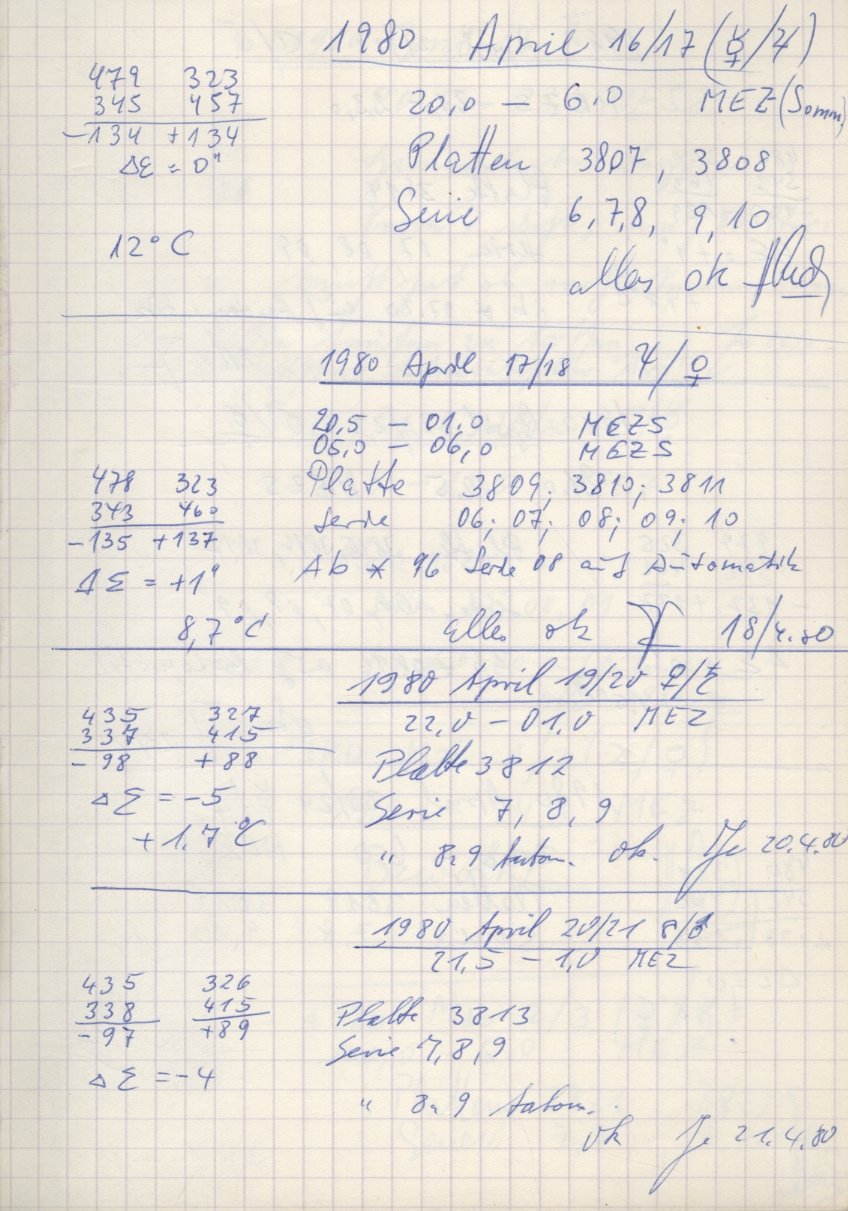 1980 April 16/17 (☿/♃)
479 323
345 457
-134 +134
Δε = 0"
12°C
20,0 — 6,0 MEZ (Somm)
Platten 3807, 3808
Serie 6, 7, 8, 9, 10
alles ok
1980 April 17/18 ♃/♀
20,5 — 01,0 MEZS
05,0 — 06,0 MEZS
478 323
343 460
-135 +137
ΔΣ = +1"
8,7°C
Platte 3809; 3810; 3811
Serie 06; 07; 08; 09; 10
Ab * 96 Serie 08 auf Automatik
alles ok 18/4.80
1980 April 19/20
22,0 — 01,0 MEZ
435 327
337 415
-98 +88
ΔΣ = -5
+1,7°C
Platte 3812
Serie 7, 8, 9
" 8,9 Autom. ok. Je 20.4.80
1980 April 20/21
21,5 — 1,0 MEZ
435 326
338 415
-97 +89
ΔΣ = -4
Platte 3813
Serie 7, 8, 9
" 8,9 Autom.
ok Je 21.4.80